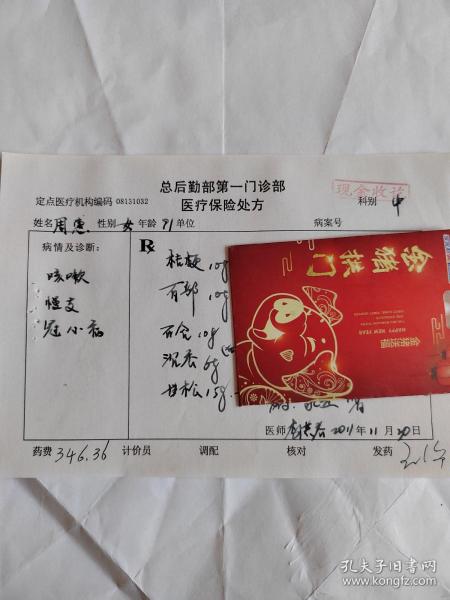 总后勤部第一门诊部
定点医疗机构编码 08131032 医疗保险处方 科别 中
现金收讫
姓名 周惠 性别 女 年龄 71 单位 病案号
病情及诊断: R
咳嗽
慢支
冠心病
桔梗 10g
百部 10g
百合 10g
沉香 6g
甘松 15g
金猪拱门
HAPPY NEW YEAR
金猪送福
医师 2011年11月20日
药费 346.36 计价员 调配 核对 发药
孔夫子旧书网
www.kongfz.com